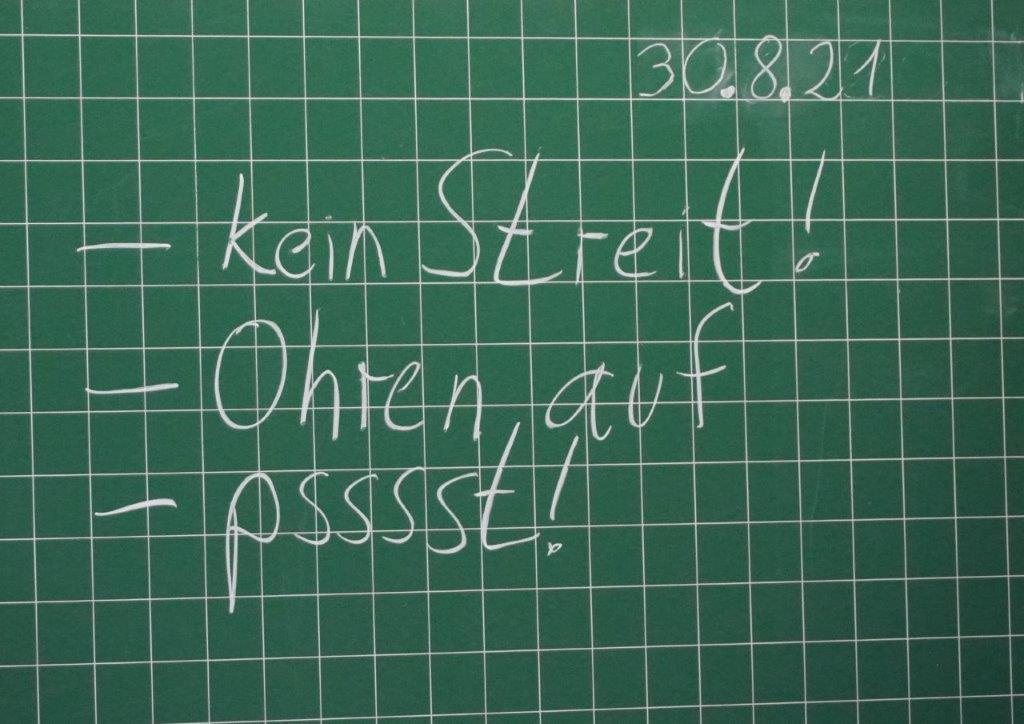 30.8.21
- kein Streit!
- Ohren auf
- pssssst!